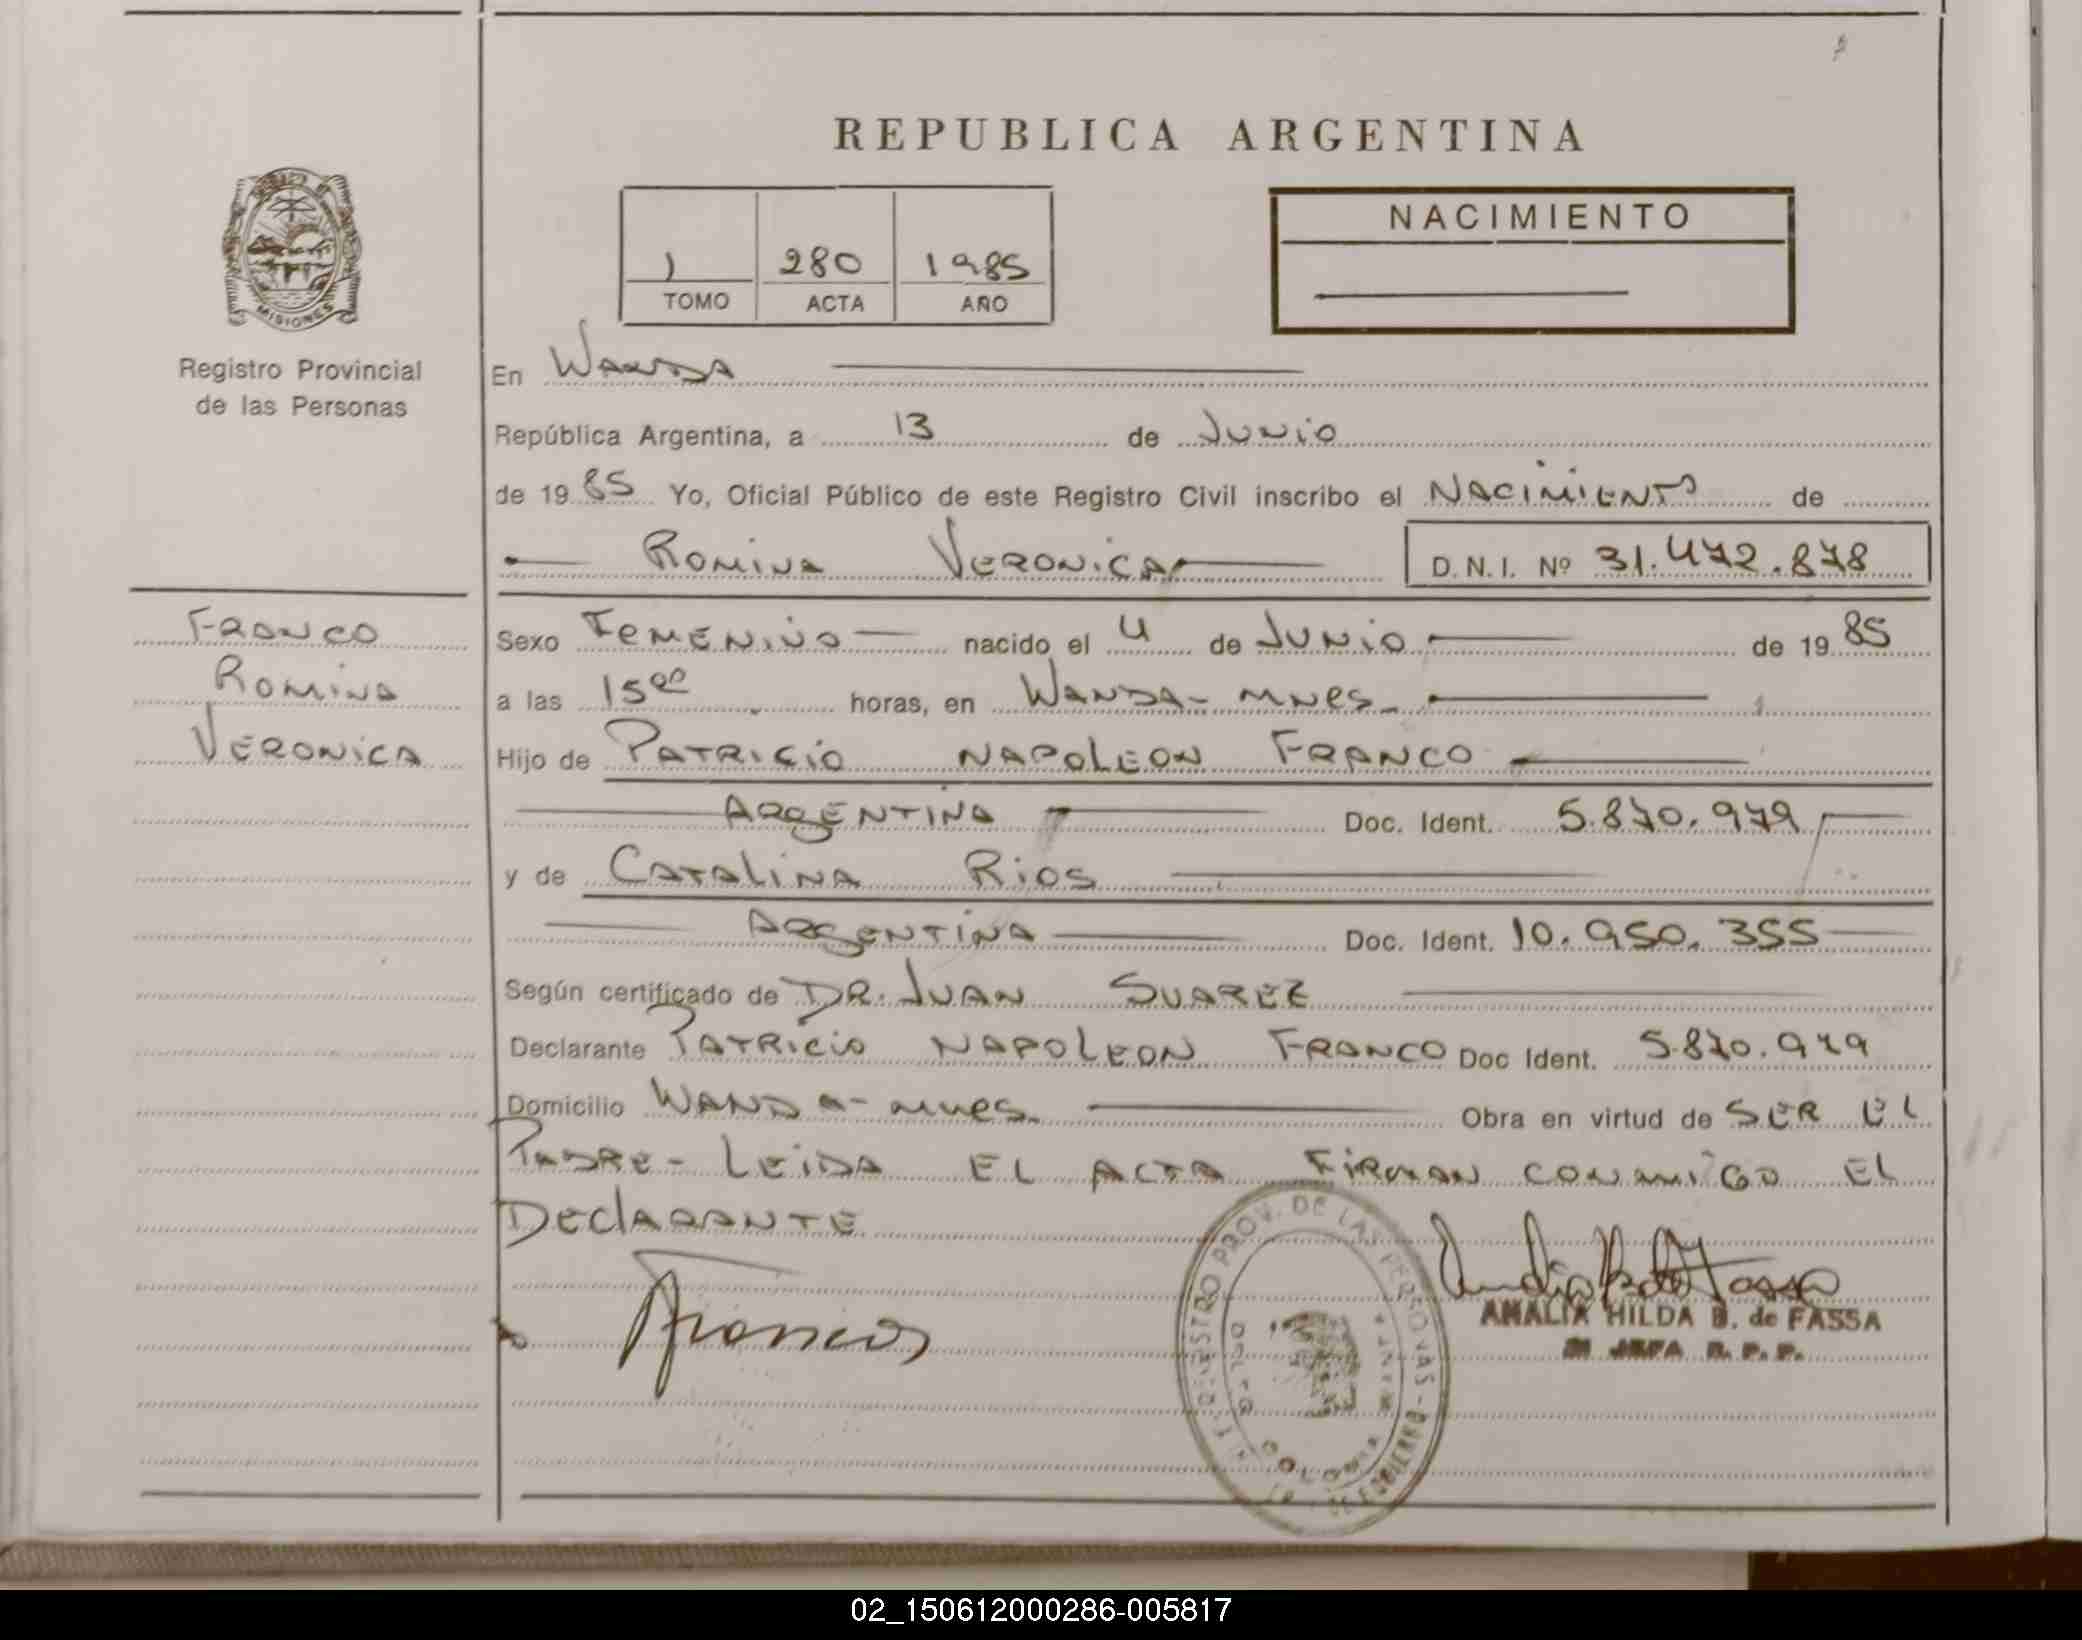 REPUBLICA ARGENTINA
1 280 1985
TOMO ACTA AÑO
NACIMIENTO
MISIONES
Registro Provincial
de las Personas
En WANDA
República Argentina, a 13 de JUNIO
de 1985 Yo, Oficial Público de este Registro Civil inscribo el NACIMIENTO de
ROMINA VERONICA D.N.I. Nº 31.472.878
FRANCO
ROMINA
VERONICA
Sexo FEMENINO nacido el 4 de JUNIO de 1985
a las 15 00 horas, en WANDA - MNES.
Hijo de PATRICIO NAPOLEON FRANCO
ARGENTINA Doc. Ident. 5.870.979
y de CATALINA RIOS
ARGENTINA Doc. Ident. 10.950.355
Según certificado de DR. JUAN SUAREZ
Declarante PATRICIO NAPOLEON FRANCO Doc Ident. 5.870.979
Domicilio WANDA - MNES. Obra en virtud de SER EL
PADRE - LEIDA EL ACTA FIRMAN CONMIGO EL
DECLARANTE
REGISTRO PROV. DE LAS PERSONAS
COLONIA WANDA
AMALIA HILDA B. de FASSA
JEFA R. P. P.
02_150612000286-005817